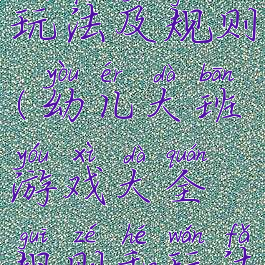 玩法及规则
yòu ér dà bān
(幼儿大班
yóu xì dà quán
游戏大全
guī zé hé wán fǎ
规则和玩法